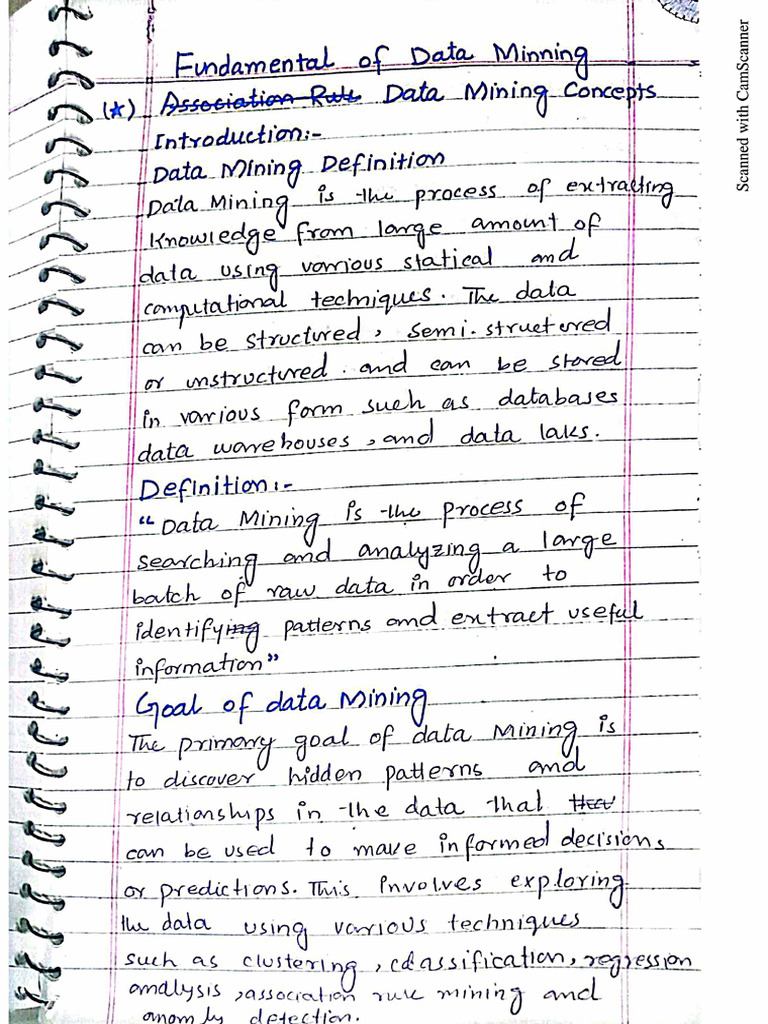 Fundamental of Data Minning
(*) Association Rule Data Mining Concepts
Introduction:-
Data Mining Definition
Data Mining is the process of extracting
Knowledge from large amount of
data using various statical and
computational techniques. The data
can be structured, semi-structured
or unstructured. and can be stored
in various form such as databases
data warehouses, and data laks.
Definition:-
"Data Mining is the process of
searching and analyzing a large
batch of raw data in order to
identifying patterns and extract useful
information"
Goal of data Mining
The primary goal of data Mining is
to discover hidden patterns and
relationships in the data that
can be used to make informed decisions
or predictions. This involves exploring
the data using various techniques
such as clustering, classification, regression
analysis, association rule mining and
anomly detection.
Scanned with CamScanner